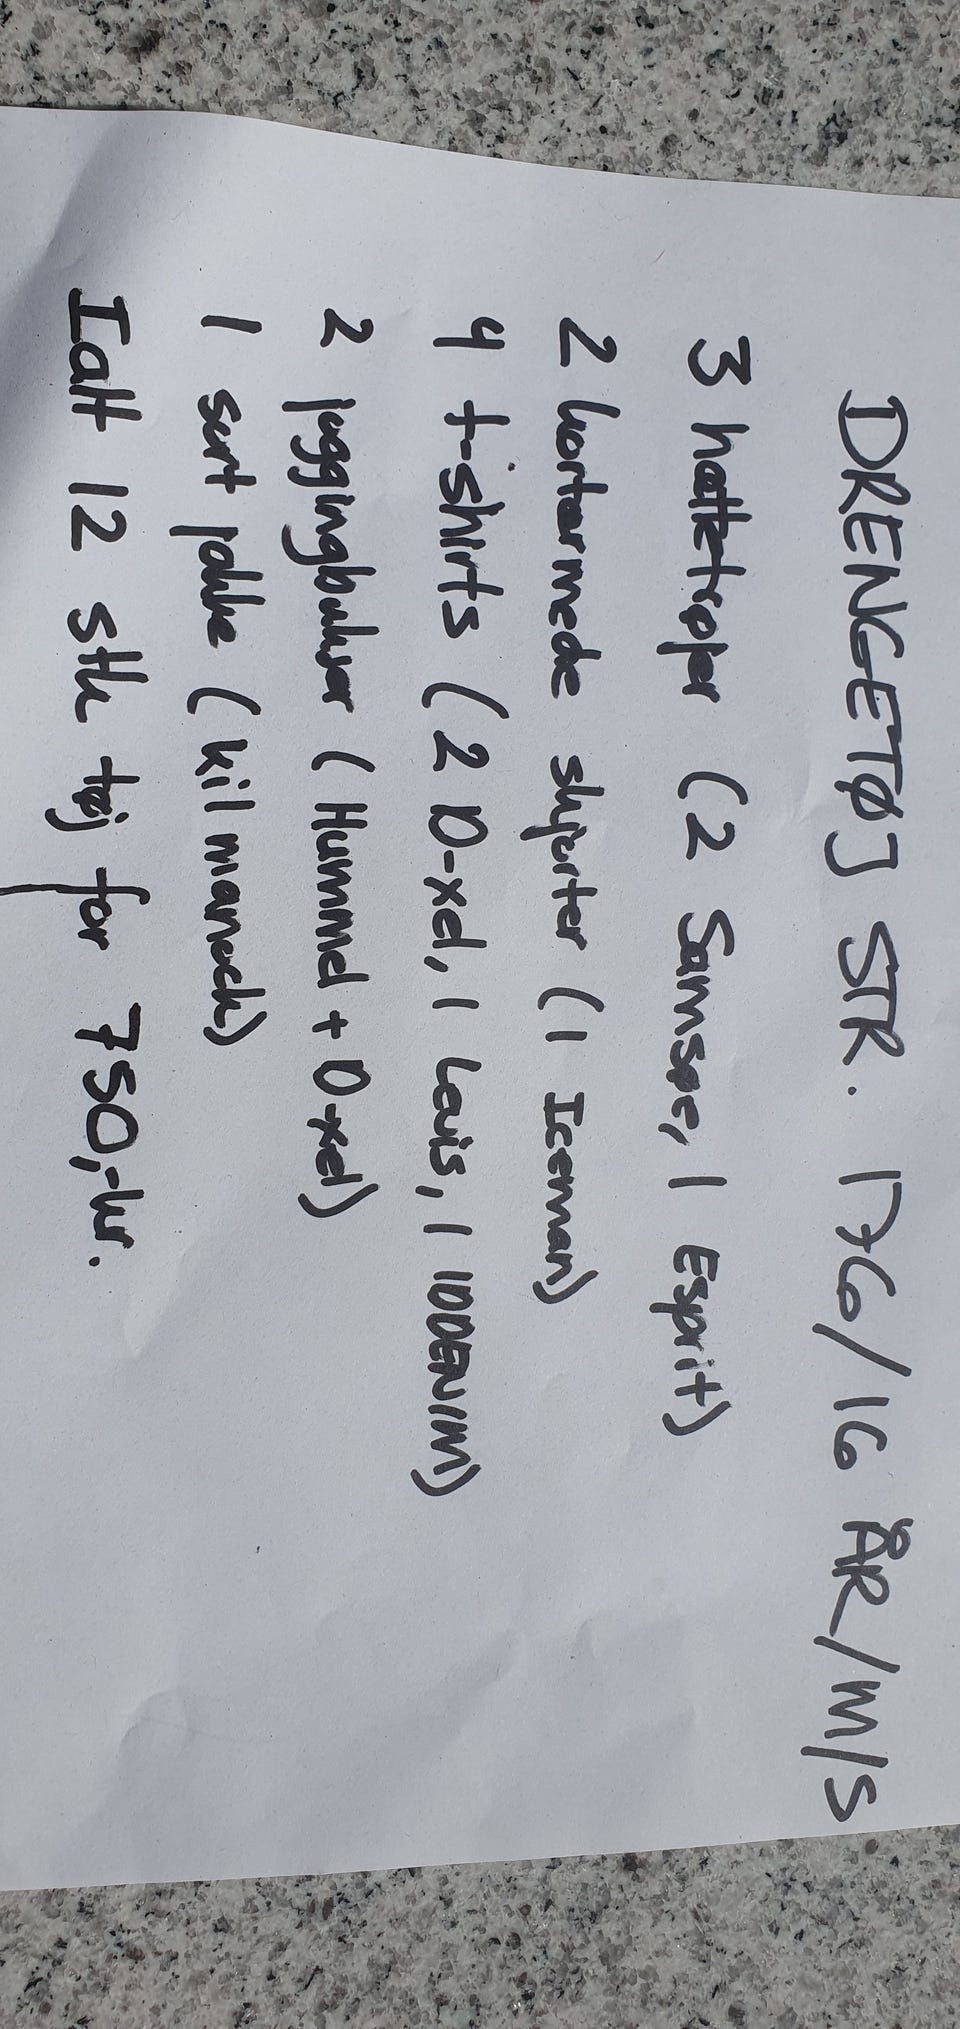 DRENGETØJ STR. 176/16 ÅR/M/S
3 hættetrøjer (2 Samsøe, 1 Esprit)
2 kortærmede skjorter (1 Iceman)
4 t-shirts (2 D-xel, 1 Levis, 1 IDDENIM)
2 joggingbukser (Hummel + D-xel)
1 sort jakke (kilmanock)
Ialt 12 stk tøj for 750,-kr.